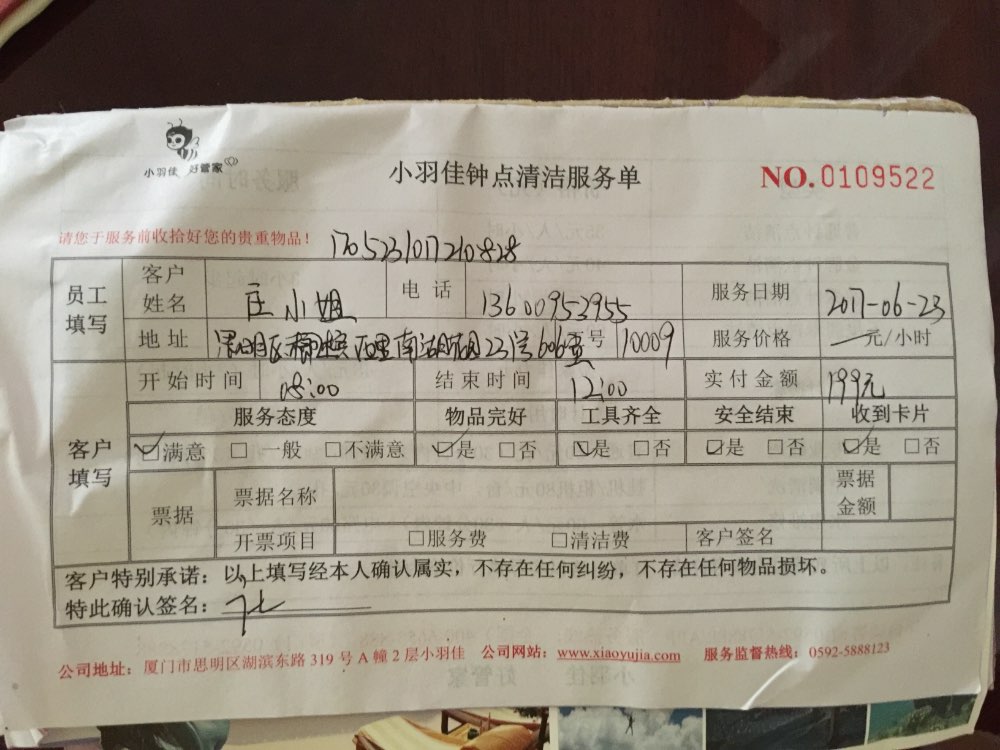 小羽佳 好管家
小羽佳钟点清洁服务单
NO.0109522
请您于服务前收拾好您的贵重物品！
1705231017210828
员工填写 客户姓名 庄小姐 电话 13600953955 服务日期 2017-06-23
地址 思明区 西里南湖 23号606 号 10009 服务价格 一元/小时
客户填写 开始时间 08:00 结束时间 12:00 实付金额 199元
服务态度 物品完好 工具齐全 安全结束 收到卡片
☑满意 □一般 □不满意 ☑是 □否 ☑是 □否 ☑是 □否 ☑是 □否
票据 票据名称 票据金额
开票项目 □服务费 □清洁费 客户签名
客户特别承诺：以上填写经本人确认属实，不存在任何纠纷，不存在任何物品损坏。
特此确认签名：
公司地址：厦门市思明区湖滨东路 319 号 A 幢 2 层小羽佳 公司网站：www.xiaoyujia.com 服务监督热线：0592-5888123